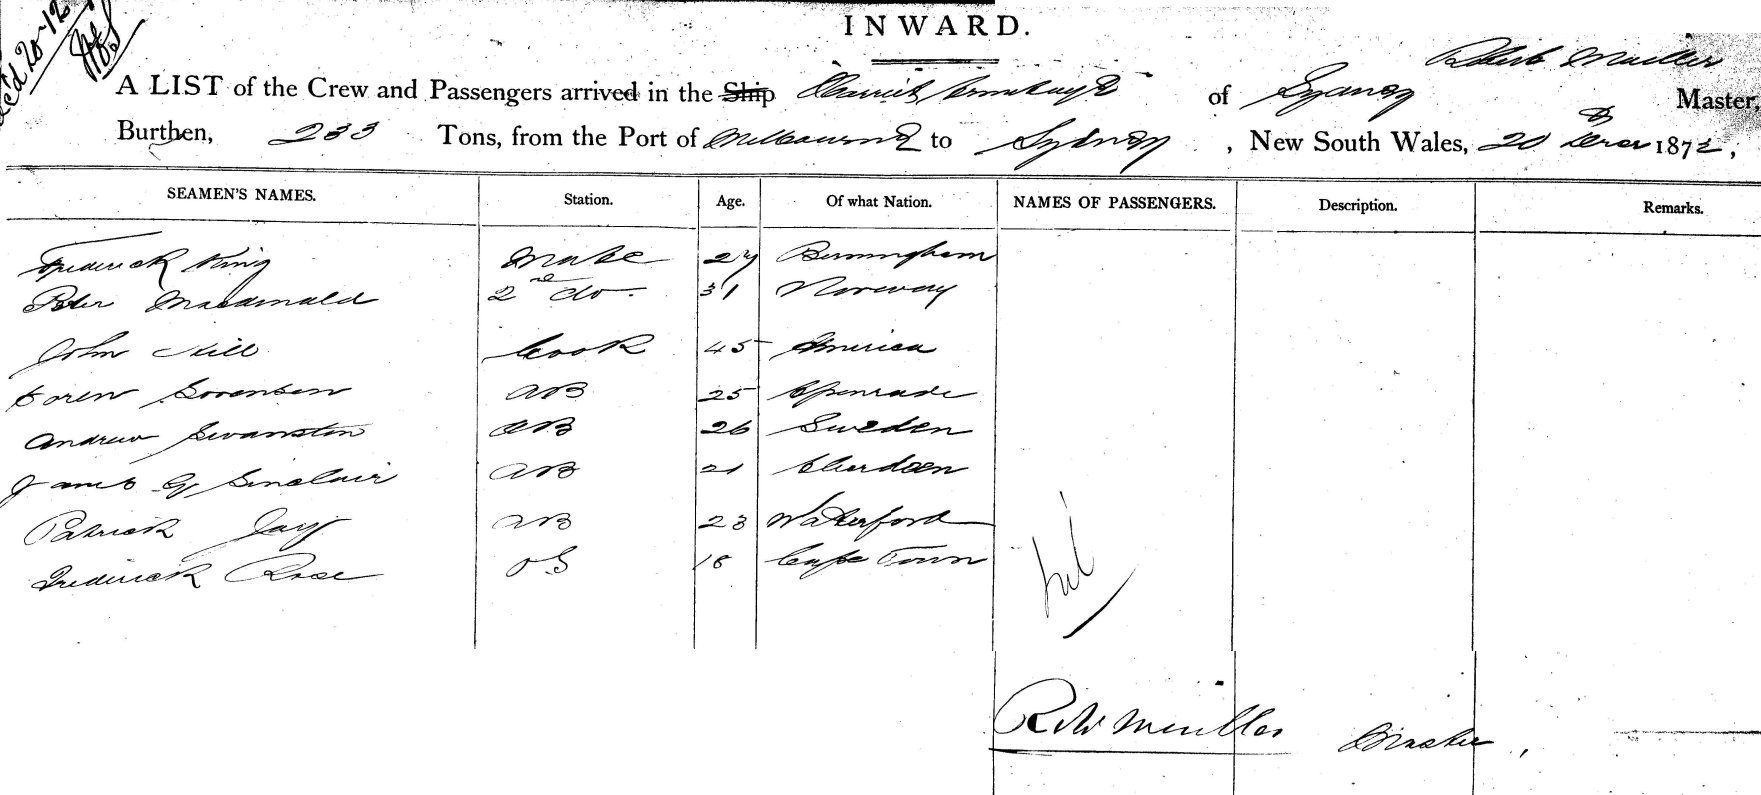 Rec'd 20-12
INWARD.
Robert Mueller
A LIST of the Crew and Passengers arrived in the Ship Harriet Armitage of Sydney Master,
Burthen, 233 Tons, from the Port of Melbourne to Sydney, New South Wales, 20 Decr 1872,
SEAMEN'S NAMES. Station. Age. Of what Nation. NAMES OF PASSENGERS. Description. Remarks.
Frederick King Mate 27 Birmingham
Peter Macdonald 2nd do. 31 Norway
John Hill Cook 45 America
Soren Sorensen AB 25 Apenrade
Andrew Swanston AB 26 Sweden
James G Sinclair AB 21 Aberdeen
Patrick AB 23 Waterford
Frederick Rose OS 18 Cape Town
Nil
Robt Mueller Master,